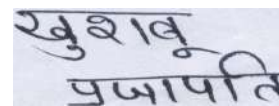 खुशबू
प्रजापति